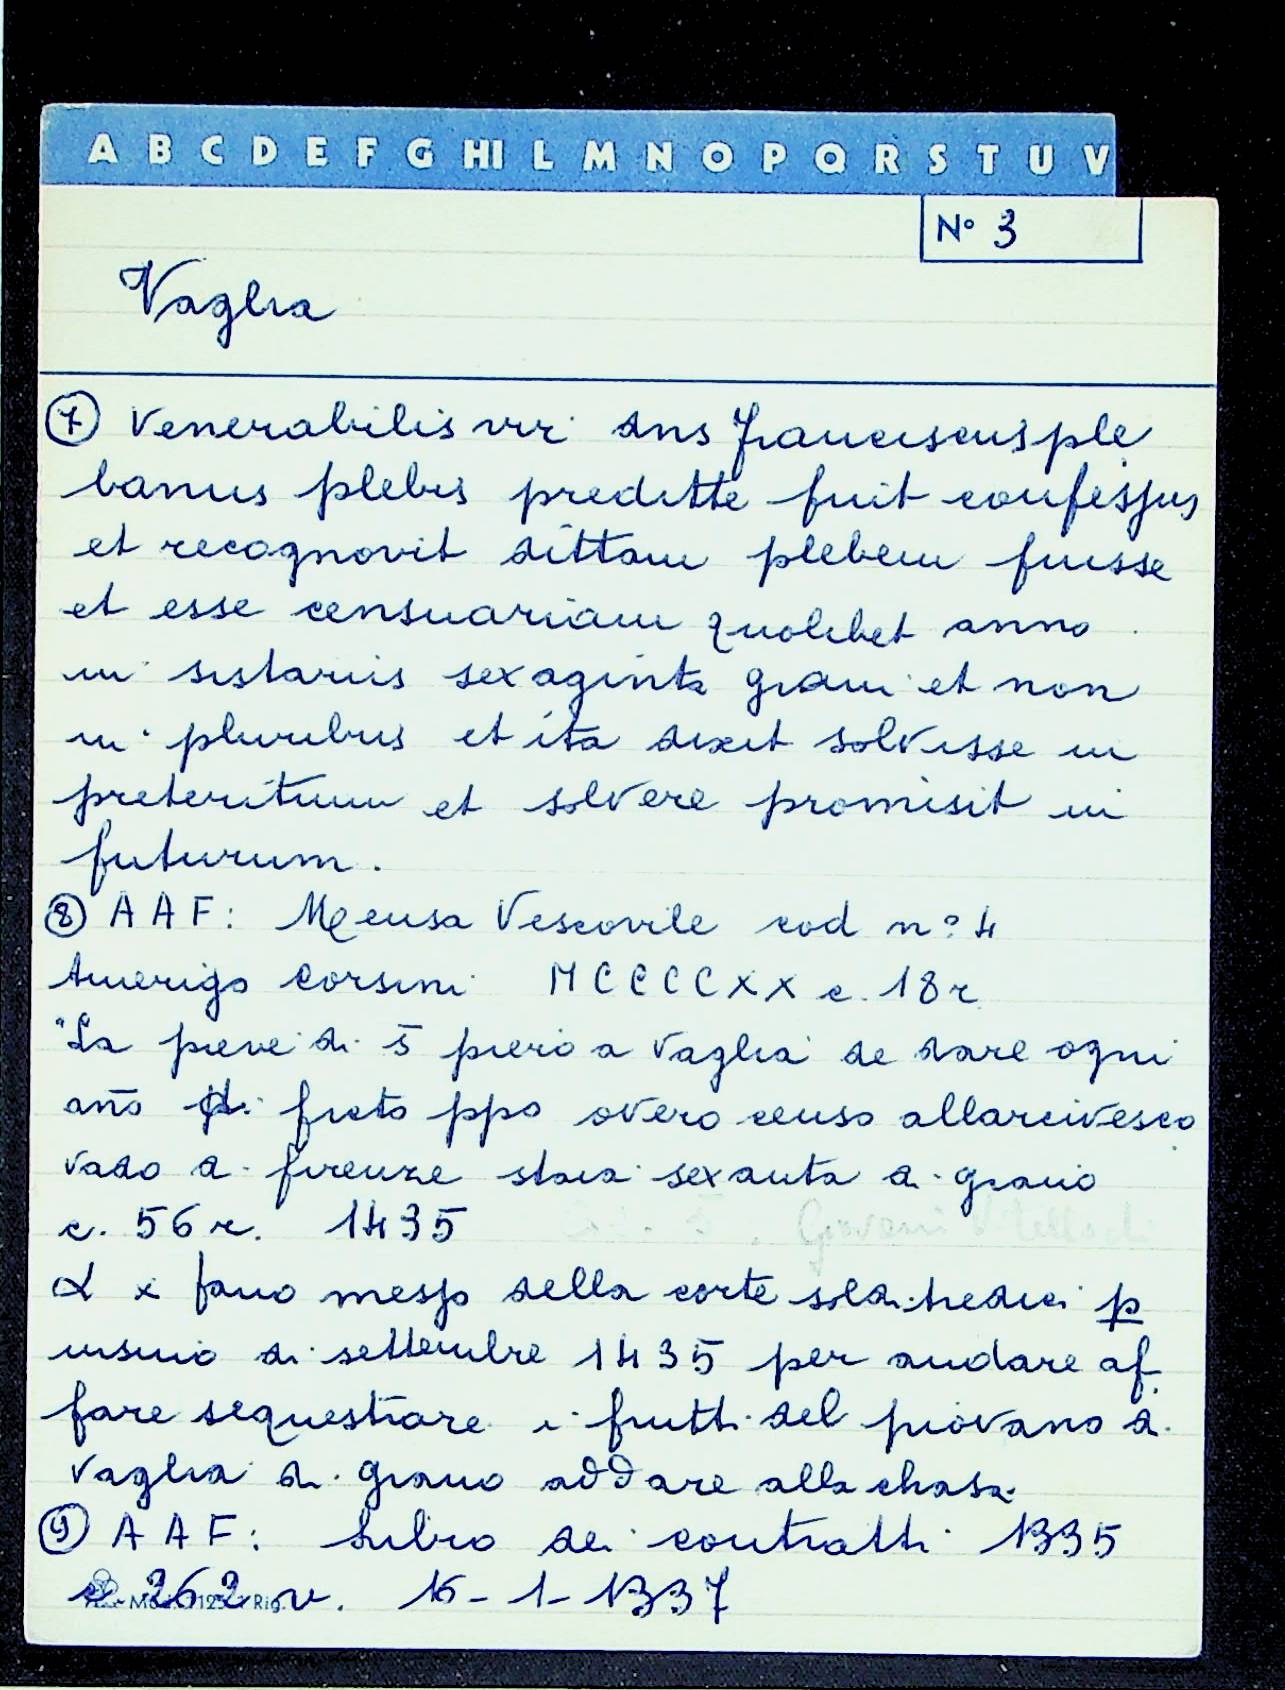 A B C D E F G HI L M N O P Q R S T U V
N° 3
Vaglia
⑦ Venerabilis vir dns franciscus ple
banus plebis preditte fuit confessus
et recognovit dittam plebem fuisse
et esse censuariam quolibet anno
in sistariis sexaginta grani et non
in pluribus et ita dixit solvisse in
preteritum et solvere promisit in
futurum.
⑧ AAF: Mensa Vescovile cod n° 4
Amerigo Corsini MCCCCXX c. 18r
"La pieve di S piero a Vaglia de dare ogni
ano di ficto ppo overo censo allarcivesco
vado di firenze staia sexanta di grano
c. 56r. 1435
x fano messo della corte soldi tredici p
di settembre 1435 per andare af
fare sequestrare i frutti del piovano di
Vaglia di grano addare alla chasa
⑨ AAF: Libro dei contratti 1335
c 262 v. 16-1-1337